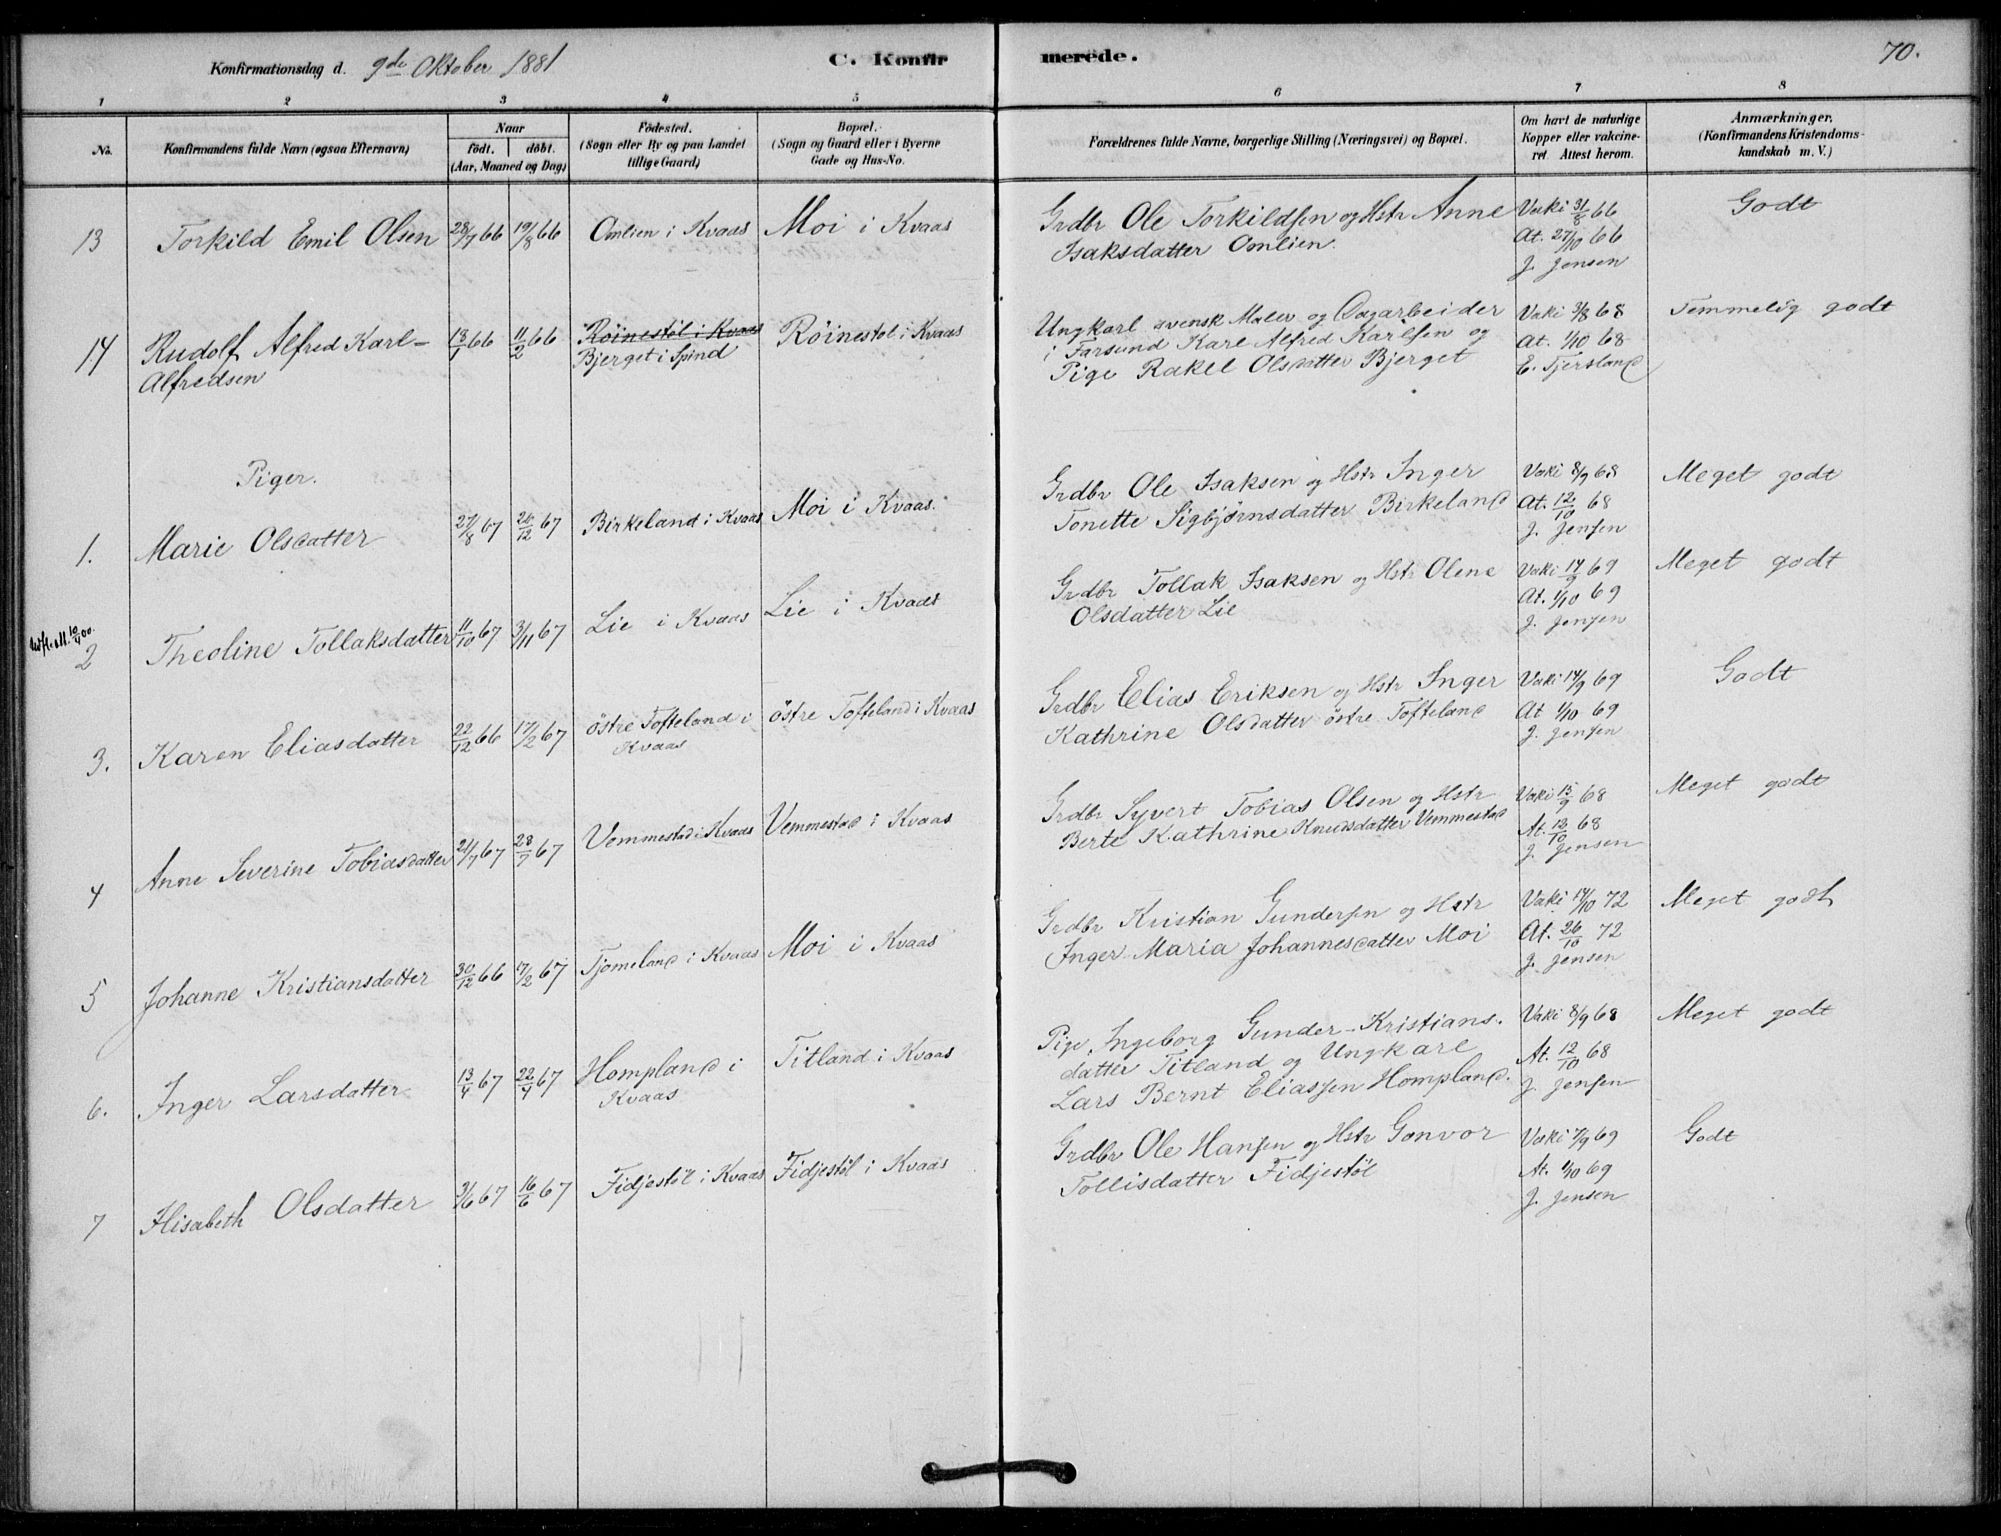 Konfirmationsdag d. 9de Oktober 1881
C. Konfirmerede.
70.
1 2 3 4 5 6 7 8
No.
Konfirmandens fulde Navn (ogsaa Efternavn)
Naar
födt. döbt.
(Aar, Maaned og Dag)
Födested.
(Sogn eller By og paa Landet
tillige Gaard)
Bopæl.
(Sogn og Gaard eller i Byerne
Gade og Hus-No.
Forældrenes fulde Navne, borgerlige Stilling (Næringsvei) og Bopæl.
Om havt de naturlige
Kopper eller vakcine-
ret. Attest herom.
Anmærkninger.
(Konfirmandens Kristendoms-
kundskab m. V.)
13 Torkild Emil Olsen 28/7 66 19/8 66 Omlien i Kvaas Moi i Kvaas
Grdbr Ole Torkildsen og Hstr Anne
Isaksdatter Omlien.
Vaki 31/8 66
At. 27/10 66
J. Jensen
Godt
14 Rudolf Alfred Karl-
Alfredsen
13/1 66 11/2 66
Röinestöl i Kvaas
Bjerget i Spind
Röinestöl i Kvaas
Ungkarl svensk Maler og Dagarbeider
i Farsund Karl Alfred Karlsen og
Pige Rakel Olsdatter Bjerget
Vaki 3/8 68
At. 1/10 68
E. Tjersland
Temmelig godt
Piger.
1. Marie Olsdatter 27/8 67 26/12 67 Birkeland i Kvaas Moi i Kvaas.
Grdbr Ole Isaksen og Hstr Inger
Tonette Sigbjörnsdatter Birkeland
Vaki 8/9 68
At. 12/10 68
J. Jensen
Meget godt
2 Theoline Tollaksdatter 11/10 67 3/11 67 Lie i Kvaas Lie i Kvaas
Grdbr Tollak Isaksen og Hstr Olene
Olsdatter Lie
Vaki 14/9 69
At. 1/10 69
J. Jensen
Meget godt
3. Karen Eliasdatter 22/12 66 17/2 67
östre Tofteland i
Kvaas
östre Tofteland i Kvaas
Grdbr Elias Eriksen og Hstr Inger
Kathrine Olsdatter östre Tofteland
Vaki 14/9 69
At 1/10 69
J. Jensen
Godt
4 Anne Severine Tobiasdatter 21/7 67 28/7 67 Vemmestad i Kvaas Vemmestad i Kvaas
Grdbr Syvert Tobias Olsen og Hstr
Berte Kathrine Knudsdatter Vemmestad
Vaki 15/9 68
At. 13/10 68
J. Jensen
Meget godt
5 Johanne Kristiansdatter 30/12 66 17/2 67 Tjomeland i Kvaas Moi i Kvaas
Grdbr Kristian Gundersen og Hstr
Inger Maria Johannesdatter Moi
Vaki 14/10 72
At. 26/10 72
J. Jensen
Meget godt
6. Inger Larsdatter 13/4 67 22/4 67
Hompland i
Kvaas
Titland i Kvaas
Pige, Ingeborg Gunder-Kristians-
datter Titland og Ungkarl
Lars Bernt Eliassen Hompland.
Vaki 8/9 68
At. 12/10 68
J. Jensen
Meget godt
7 Elisabeth Olsdatter 3/6 67 16/6 67 Fidjestöl i Kvaas Fidjestöl i Kvaas
Grdbr Ole Hansen og Hstr Gonvor
Tollisdatter Fidjestöl
Vaki 7/9 69
At. 1/10 69
J. Jensen
Godt